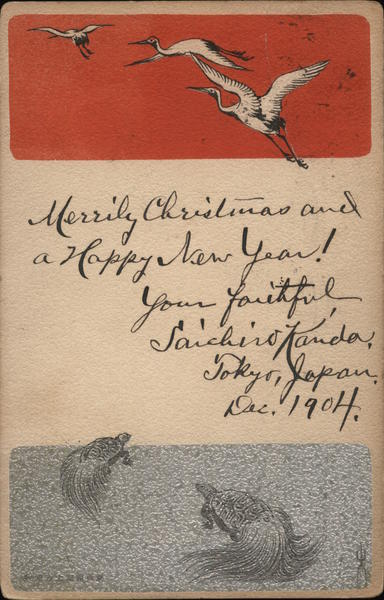 Merrily Christmas and
a Happy New Year!
Your faithful,
Saichiro Kanda.
Tokyo, Japan.
Dec. 1904.